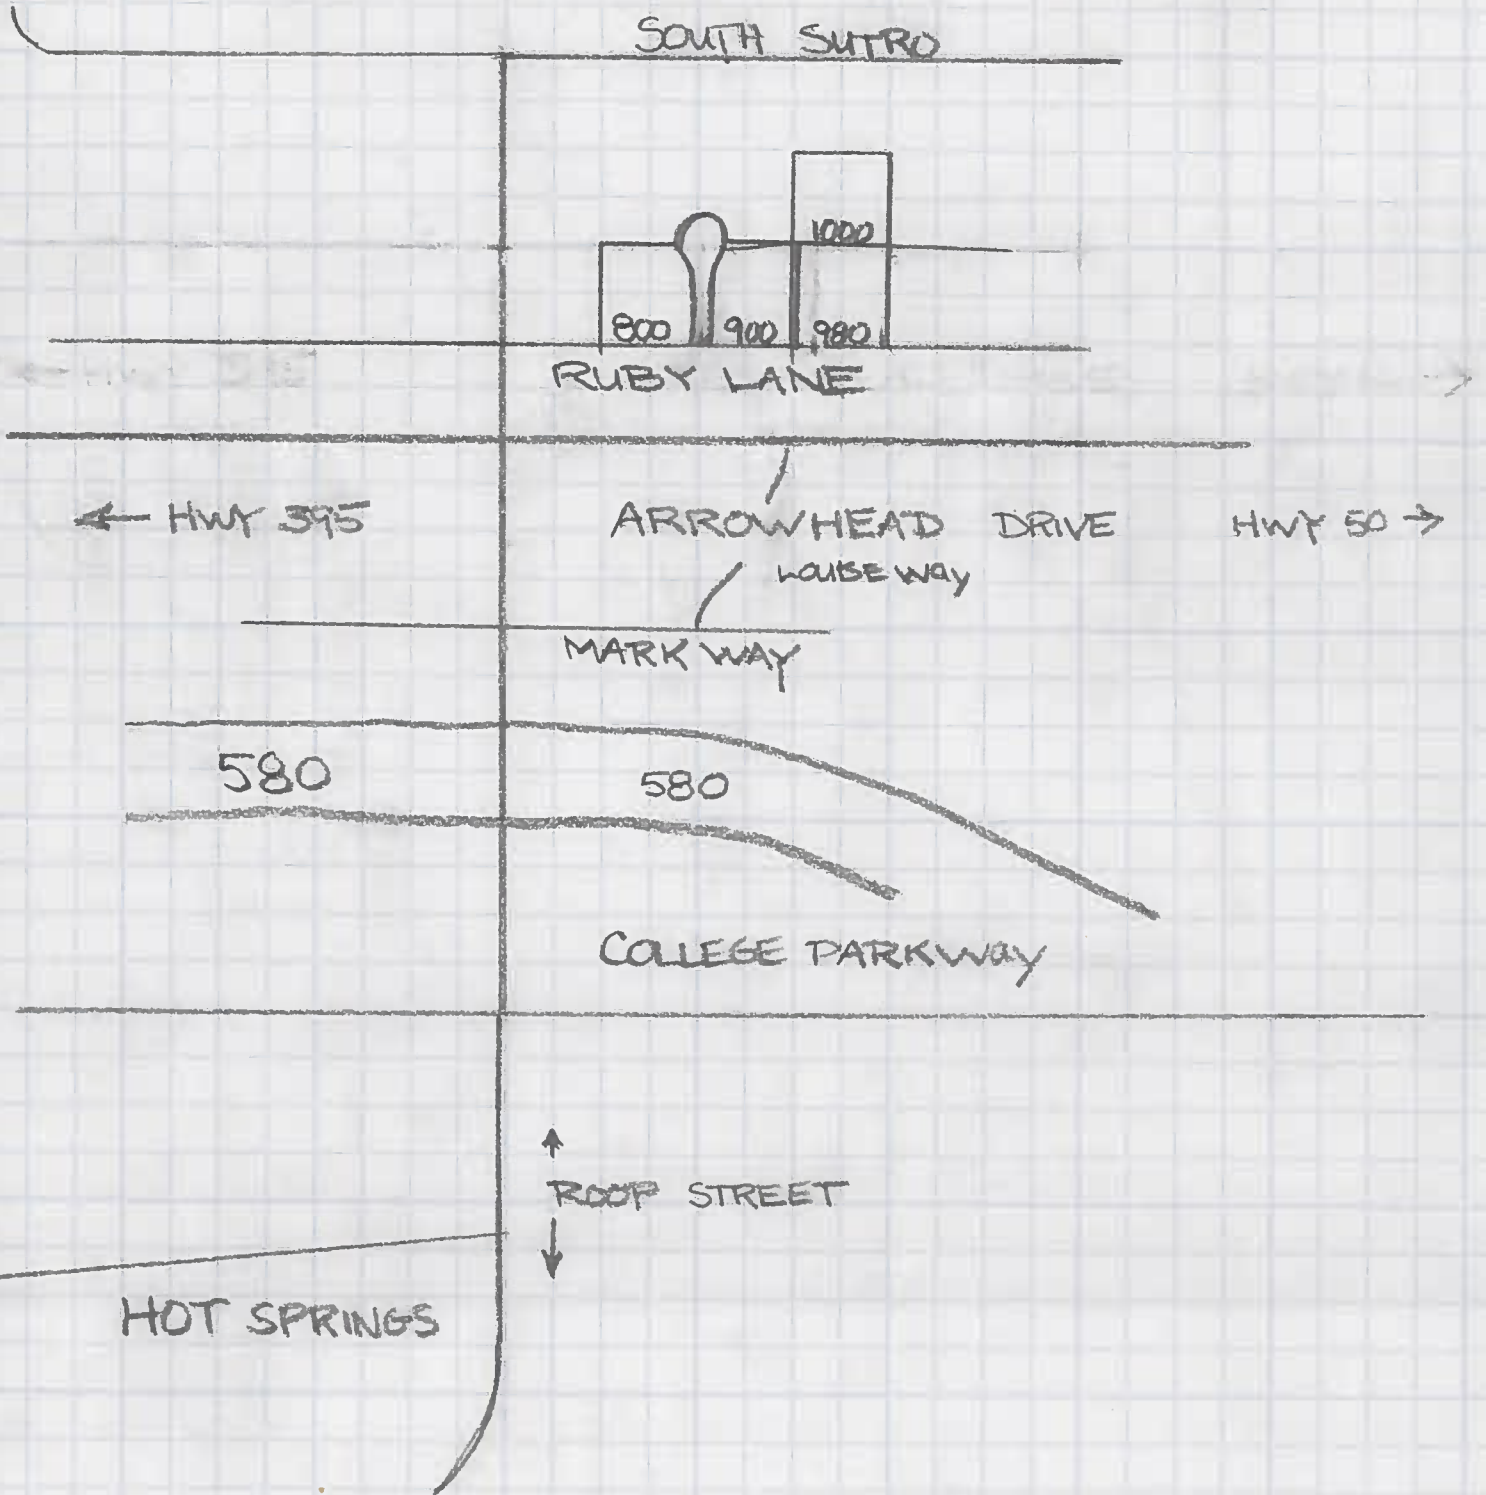 SOUTH SUTRO
1000
800 900 980
RUBY LANE
← HWY 395
ARROWHEAD DRIVE
HWY 50 →
LOUISE WAY
MARK WAY
580
580
COLLEGE PARKWAY
ROOP STREET
HOT SPRINGS